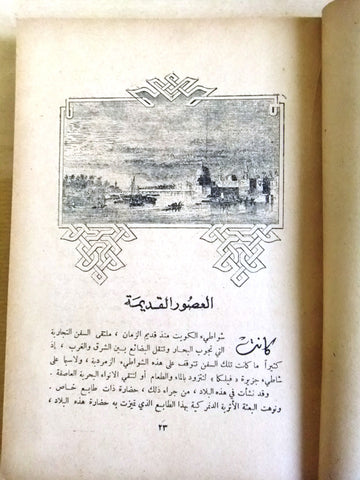 العصور القديمة
كانت شواطيء الكويت منذ قديم الزمان ، ملتقى السفن التجارية
التي تجوب البحار وتنقل البضائع بين الشرق والغرب ، إذ
كثيراً ما كانت تلك السفن تتوقف على هذه الشواطيء الزمردية ، ولاسيما على
شاطيء جزيرة « فيلكا » لتتزود بالماء والطعام أو لتتقي الانواء البحرية العاصفة .
وقد نشأت في هذه البلاد ، من جراء ذلك ، حضارة ذات طابع خاص .
ونوهت البعثة الأثرية الدنمركية بهذا الطابع الذي تميزت به حضارة هذه البلاد ،
٢٣